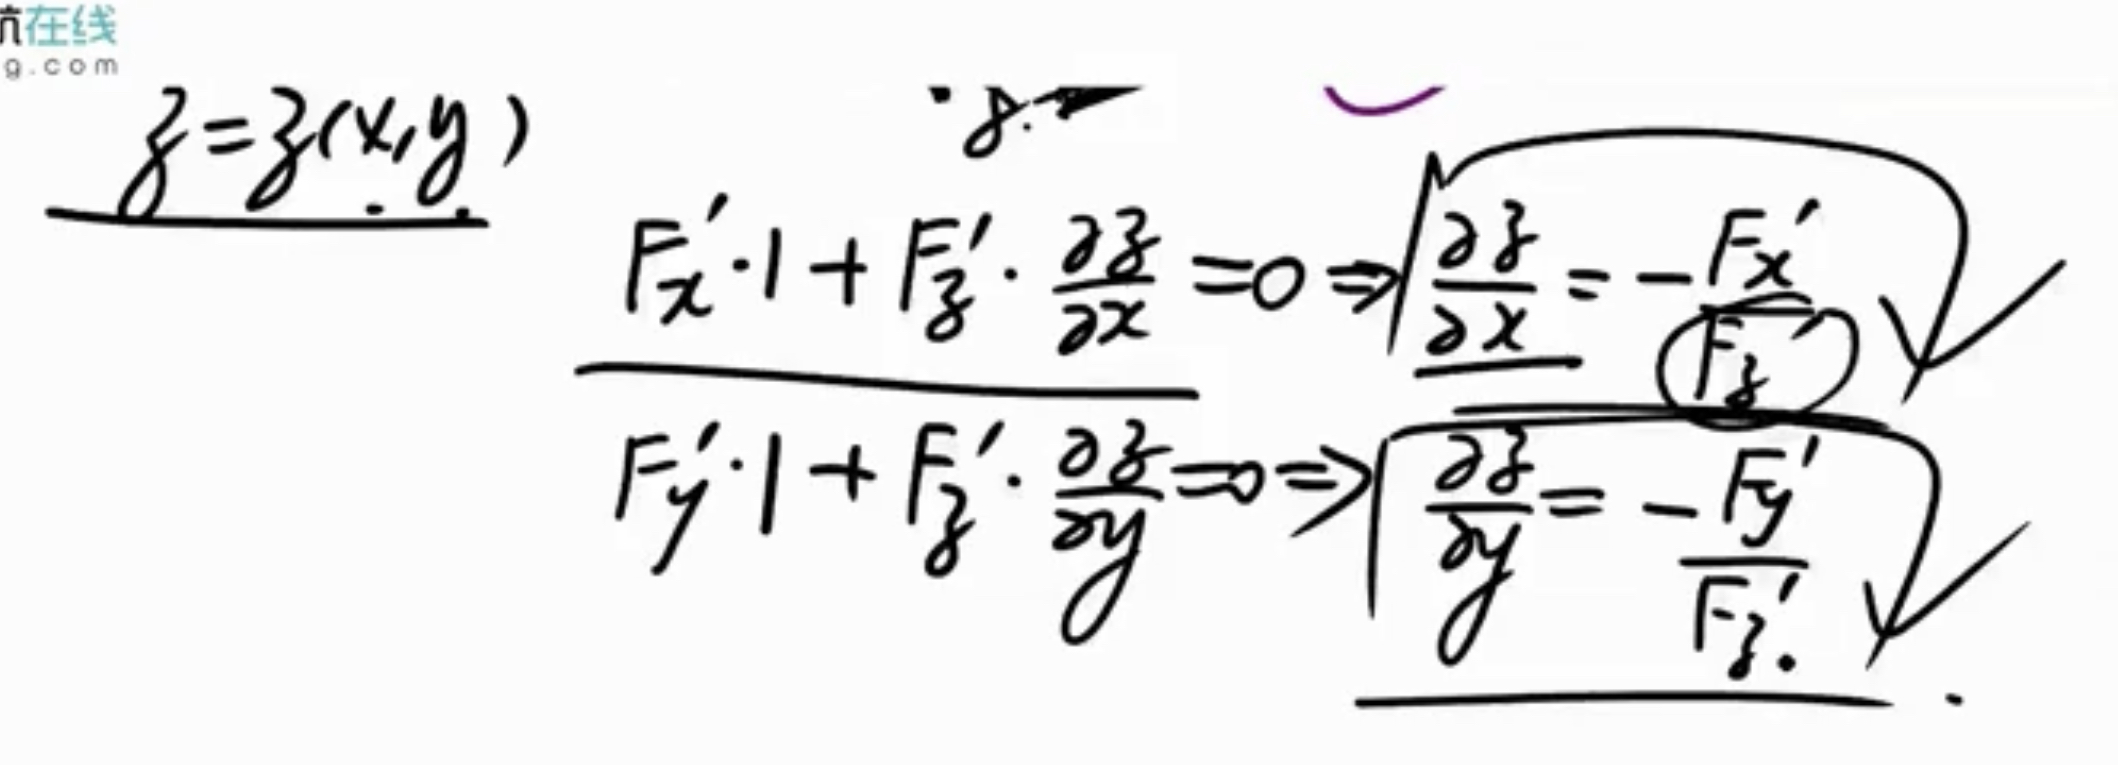 在线
g.com
z=z(x,y)
F'x·1+F'z·∂z/∂x=0⇒∂z/∂x=-F'x/F'z
F'y·1+F'z·∂z/∂y=0⇒∂z/∂y=-F'y/F'z.